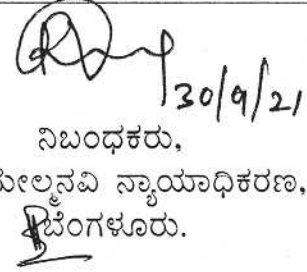 30/9/21
ನಿಬಂಧಕರು,
ಮೇಲ್ಮನವಿ ನ್ಯಾಯಾಧಿಕರಣ,
ಬೆಂಗಳೂರು.